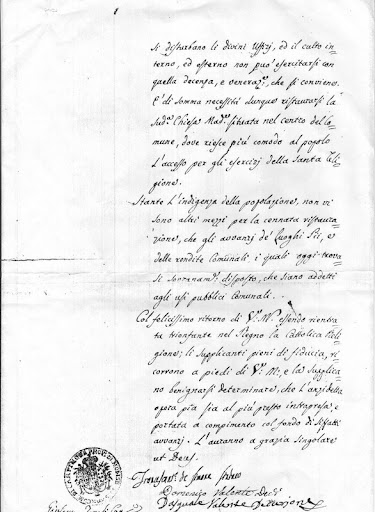 si disturbano li divini Uffizj, ed il culto in=
terno, ed esterno non può esercitarsi con
quella decenza, e venerazne, che si conviene.
E' di somma necessità dunque ristaurarsi la
sudta Chiesa Made situata nel centro del Co=
mune, dove riesce più comodo al popolo
l'accesso per gli esercizj della Santa Reli=
gione.
Stante l'indigenza della popolazione, non vi
sono altri mezzi per la cennata ristaura=
zione, che gli avvanzj de' Luoghi Pii, e
delle rendite Comunali, i quali oggi trova=
si sovranamte disposto, che siano addetti
agli usi pubblici comunali.
Col felicissimo ritorno di V. M. essendo rientra=
ta trionfante nel Regno la Cattolica Reli=
gione; li supplicanti pieni di fiducia, ri=
corrono a' piedi di V. M., e la supplica=
no benignarsi determinare, che l'anzidetta
opera pia sia al più presto intrapresa, e
portata a compimento col fondo di siffatti
avvanzj. L'avranno a grazia singolare
ut Deus.
Domenico Valente
Pasquale Valente